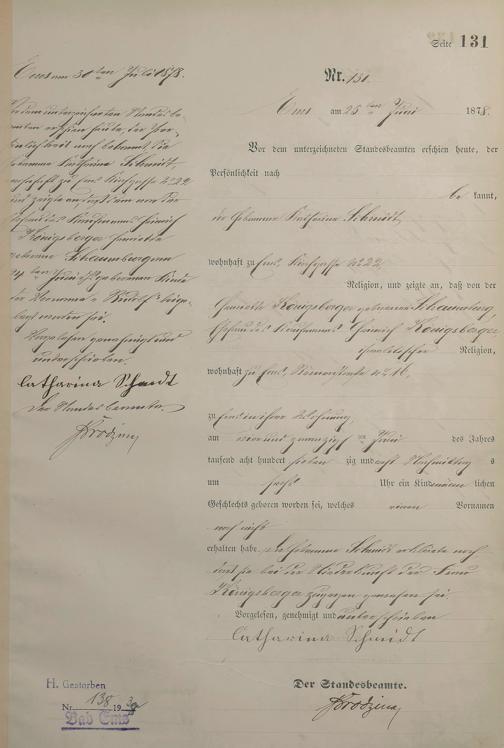 Seite 131
Ems am 30ten Juli 1878.
Vor dem unterzeichneten Standesbe-
amten erschien heute, der Per-
sönlichkeit nach bekannt, die
Hebamme Katharina Schmidt,
wohnhaft zu Ems Kirchgasse No 22
und zeigte an, daß von der
Ehefrau des Kaufmanns Heinrich
Königsberger Henriette
geborene Schaumburger am
24ten Juni geborenen Kinde
der Vorname Rudolf beige-
legt worden sei.
Vorgelesen genehmigt und
unterschrieben
Catharina Schmidt
Der Standesbeamte.
Nr. 131
Ems am 25ten Juni 1878.
Vor dem unterzeichneten Standesbeamten erschien heute, der
Persönlichkeit nach
be kannt,
die Hebamme Katharina Schmidt,
wohnhaft zu Ems, Kirchgasse No 22,
Religion, und zeigte an, daß von der
Henriette Königsberger geborene Schaumburg
Ehefrau des Kaufmanns Heinrich Königsberger
israelitischer Religion,
wohnhaft zu Ems, No 16,
zu Ems in ihrer Wohnung
am vier und zwanzigsten Juni des Jahres
tausend acht hundert sieben zig und acht Nachmittag s
um sechs Uhr ein Kind männ lichen
Geschlechts geboren worden sei, welches einen Vornamen
noch nicht
erhalten habe. Die Hebamme Schmidt erklärte noch
daß sie bei der Niederkunft der Frau
Königsberger zugegen gewesen sei
Vorgelesen, genehmigt und unterschrieben
Catharina Schmidt
Der Standesbeamte.
H. Gestorben
Nr. 138 19
Bad Ems